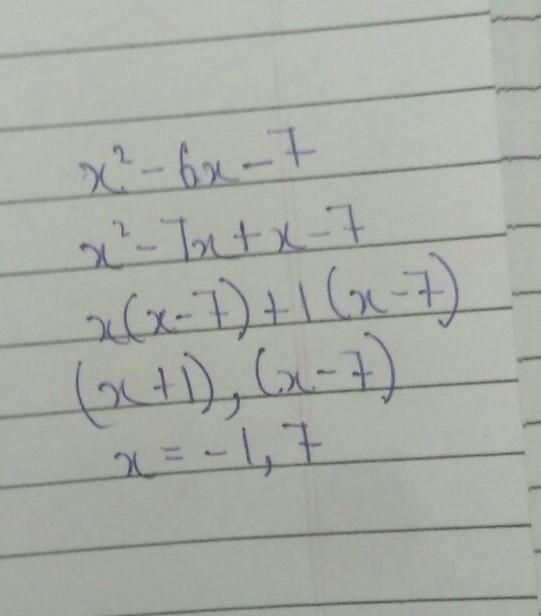 x² - 6x - 7
x² - 7x + x - 7
x(x-7) + 1(x-7)
(x+1), (x-7)
x = -1, 7